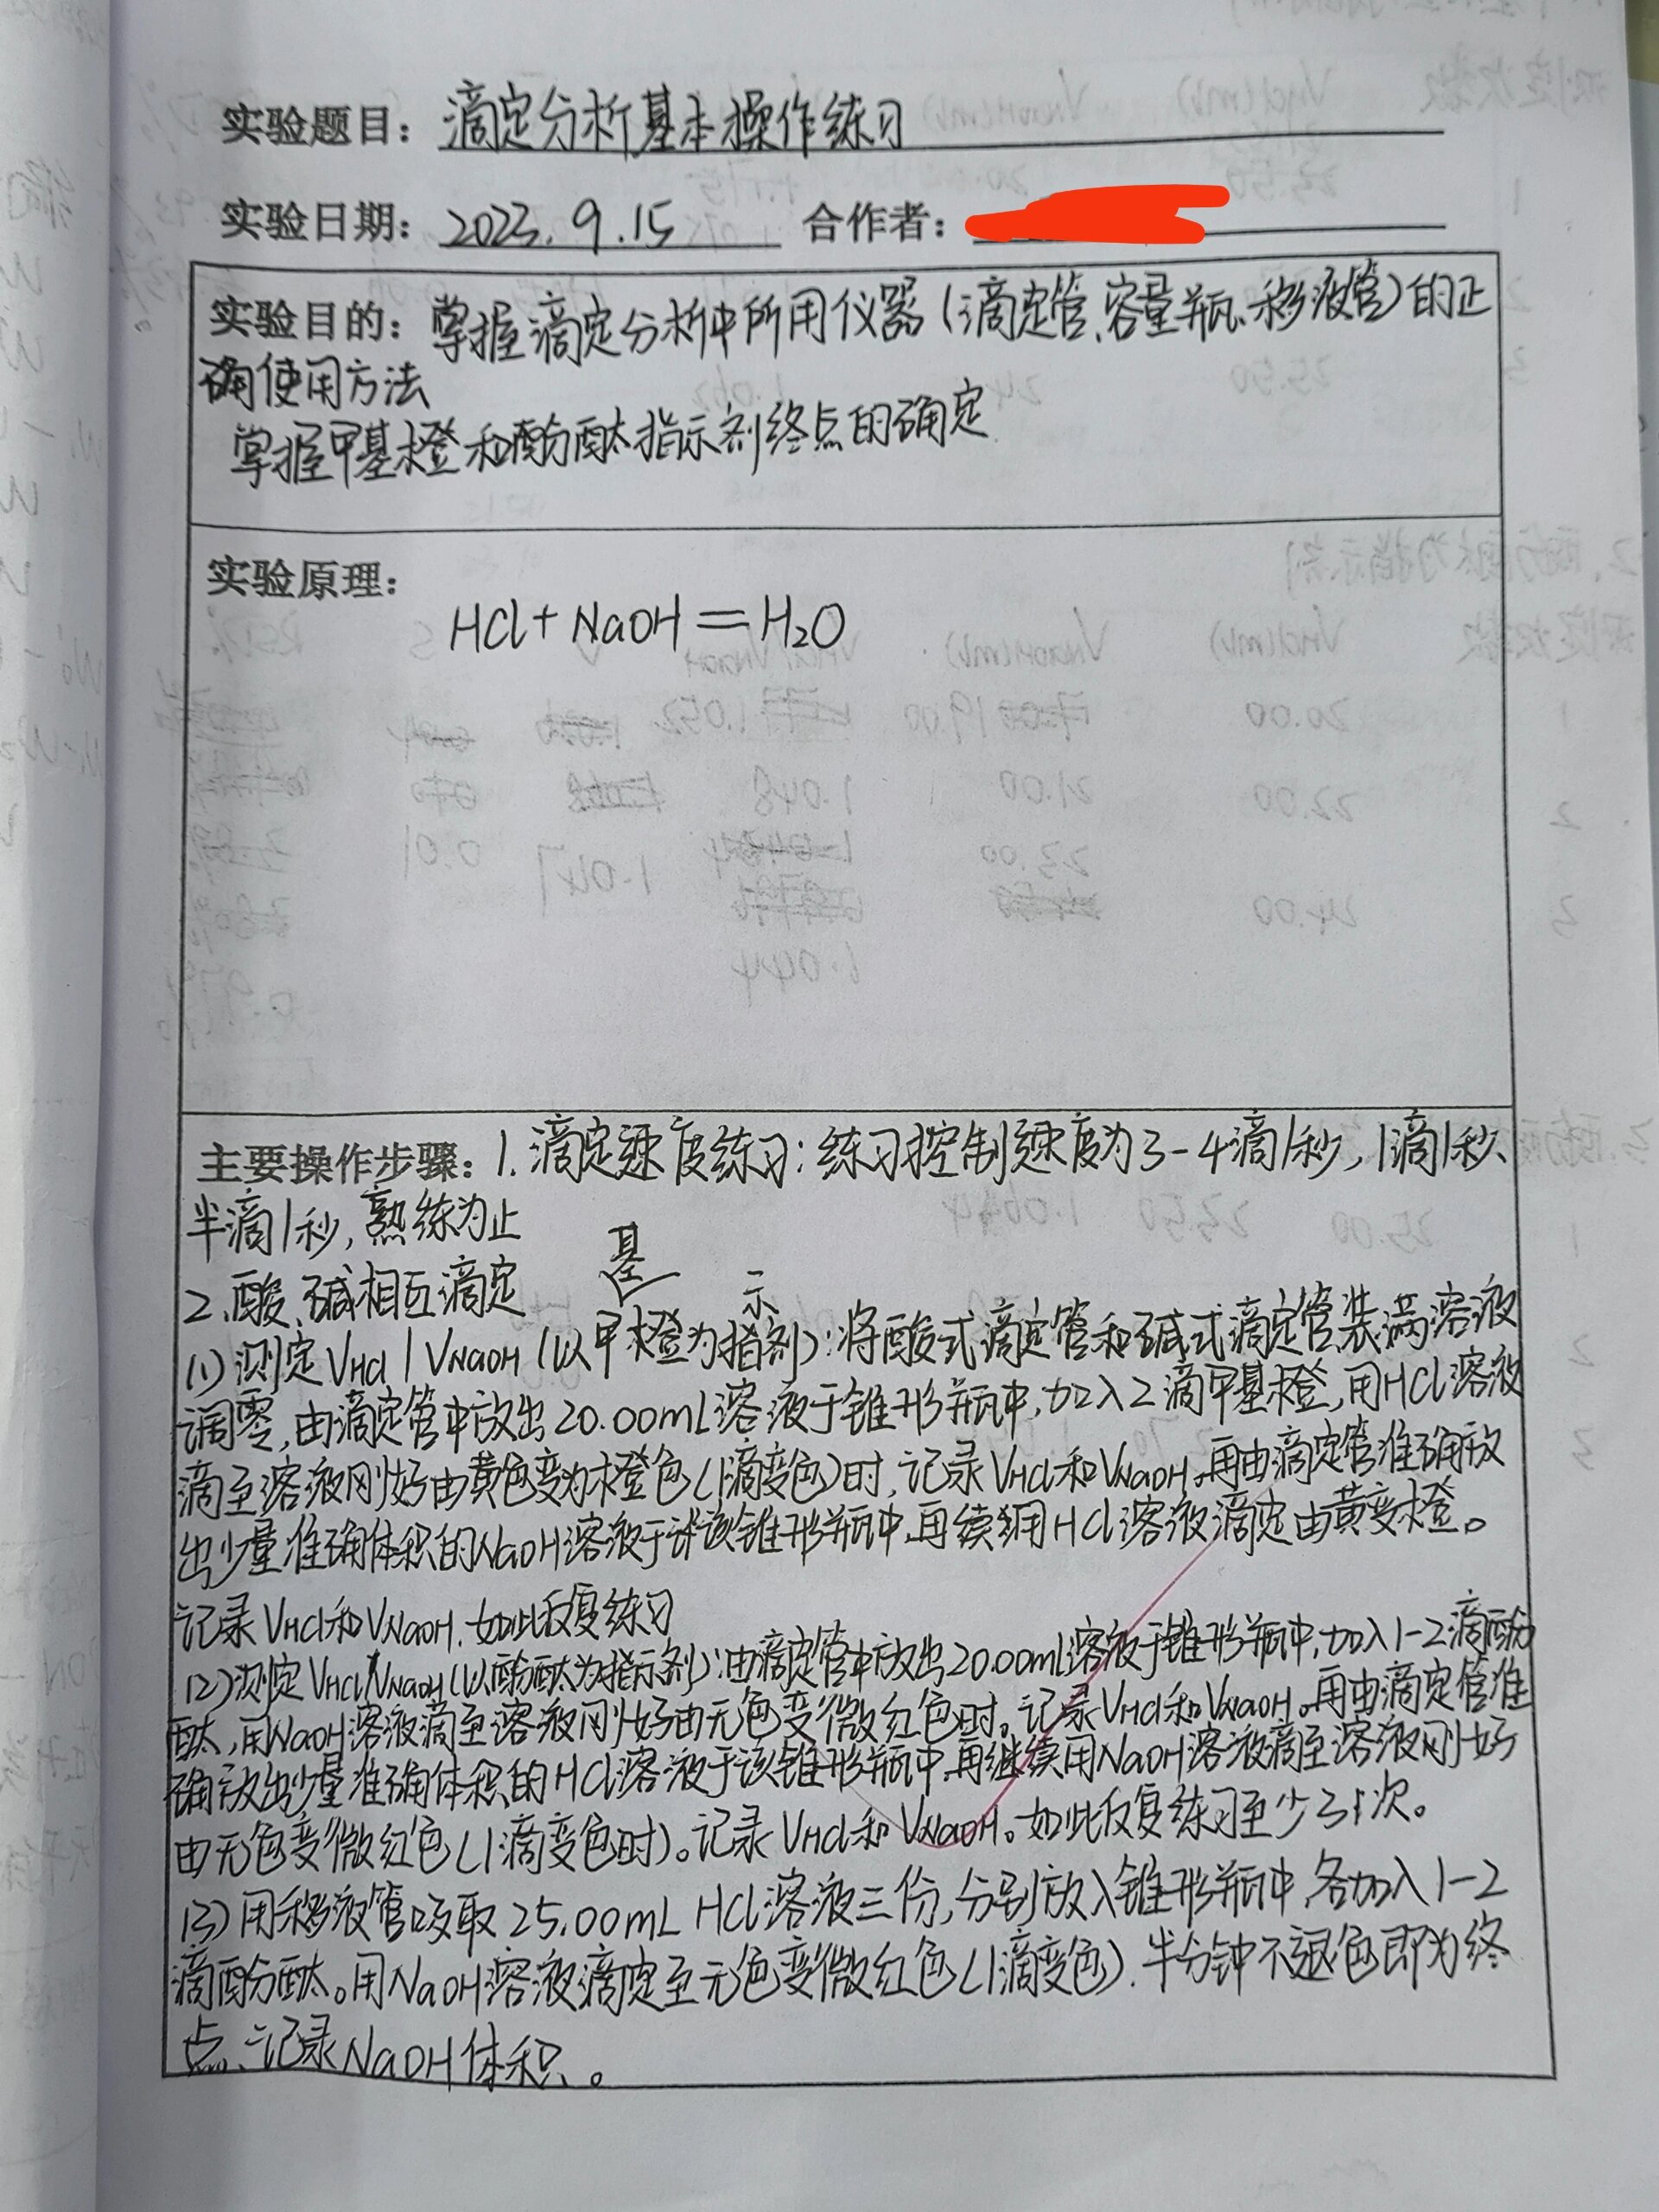 实验题目：滴定分析基本操作练习
实验日期：2023.9.15 合作者：
实验目的：掌握滴定分析中所用仪器（滴定管、容量瓶、移液管）的正
确使用方法
掌握甲基橙和酚酞指示剂终点的确定
实验原理：
HCl+NaOH=H₂O
主要操作步骤：1.滴定速度练习：练习控制速度为3-4滴/秒，1滴/秒、
半滴/秒，熟练为止
2.酸、碱相互滴定
基 示
(1)测定VHCl/VNaOH(以甲橙为指剂)：将酸式滴定管和碱式滴定管装满溶液
调零，由滴定管中放出20.00mL溶液于锥形瓶中，加入2滴甲基橙，用HCl溶液
滴至溶液刚好由黄色变为橙色(1滴变色)时，记录VHCl和VNaOH。再由滴定管准确放
出少量准确体积的NaOH溶液于该锥形瓶中，再续用HCl溶液滴定由黄变橙。
记录VHCl和VNaOH，如此反复练习
(2)测定VHCl/VNaOH(以酚酞为指示剂)：由滴定管中放出20.00mL溶液于锥形瓶中，加入1-2滴酚
酞，用NaOH溶液滴至溶液刚好由无色变微红色时。记录VHCl和VNaOH。再由滴定管准
确放出少量准确体积的HCl溶液于该锥形瓶中，再继续用NaOH溶液滴至溶液刚好
由无色变微红色(1滴变色时)。记录VHCl和VNaOH。如此反复练习至少3次。
(3)用移液管吸取25.00mL HCl溶液三份，分别放入锥形瓶中，各加入1-2
滴酚酞。用NaOH溶液滴定至无色变微红色(1滴变色)，半分钟不退色即为终
点、记录NaOH体积。